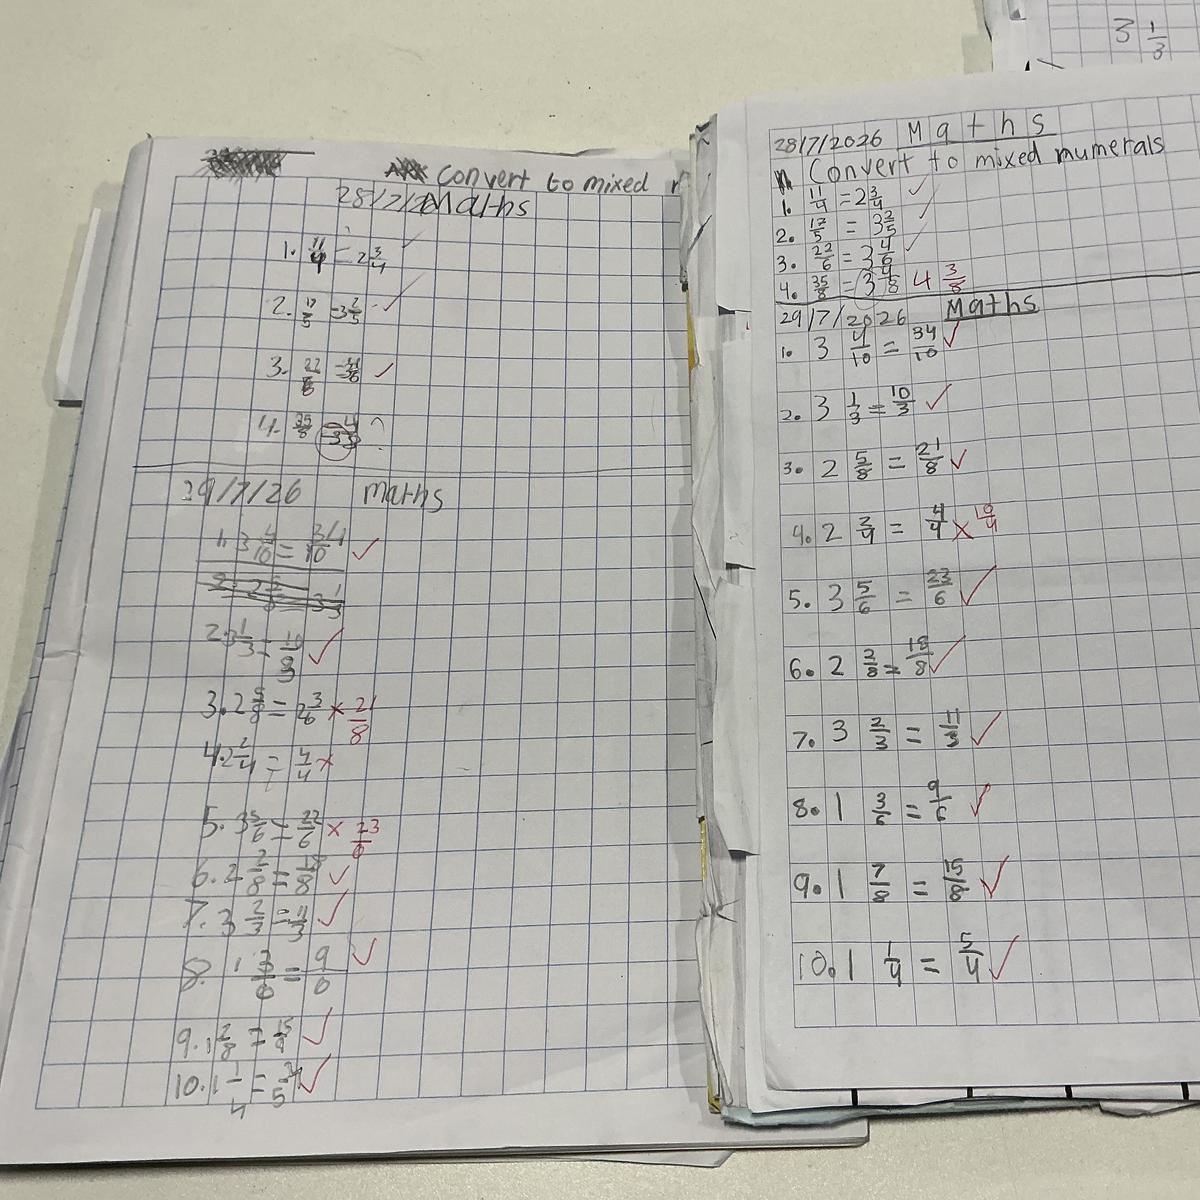 Convert to mixed
28/7/2 Maths
1. 11/4 = 2 3/4
2. 17/5 = 3 2/5
3. 22/6
4. 35/8
29/7/26 maths
1. 3 4/10 = 34/10
2. 3 1/3 = 10/3
3. 2 5/8 = 2 3/6 × 21/8
4. 2 2/4 = 4/4 ×
5. 3 5/6 = 22/6 × 23/6
6. 2 2/8 = 18/8
7. 3 2/3 = 11/3
8. 1 3/6 = 9/6
9. 1 7/8 = 15/
10. 1 1/4 =
3 1/3
28/7/2026 Maths
Convert to mixed mumerals
1. 11/4 = 2 3/4
2. 17/5 = 3 2/5
3. 22/6 = 3 4/6
4. 35/8 = 3 4/8 4 3/8
29/7/2026 Maths
1. 3 4/10 = 34/10
2. 3 1/3 = 10/3
3. 2 5/8 = 21/8
4. 2 2/4 = 4/4 × 10/4
5. 3 5/6 = 23/6
6. 2 2/8 = 18/8
7. 3 2/3 = 11/3
8. 1 3/6 = 9/6
9. 1 7/8 = 15/8
10. 1 1/4 = 5/4